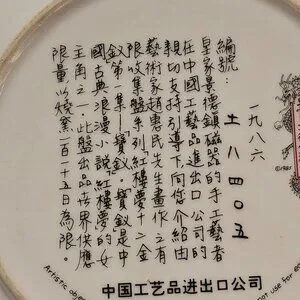 編號:
皇家景德鎮磁器的手工藝者
在中國工藝品進出口公司的
親切支持引導下向您介紹由
藝術家趙惠民先生畫作有
限收集盤系列紅樓夢十二金
釵第一集—寶釵。寶釵是中
國古典浪漫小說紅樓夢的女
主角之一。此盤出品世界供應
限量以燒窯一百十五日為限。
一九八六
土八四〇五
中国工艺品进出口公司
Artistic
not use for
©1985